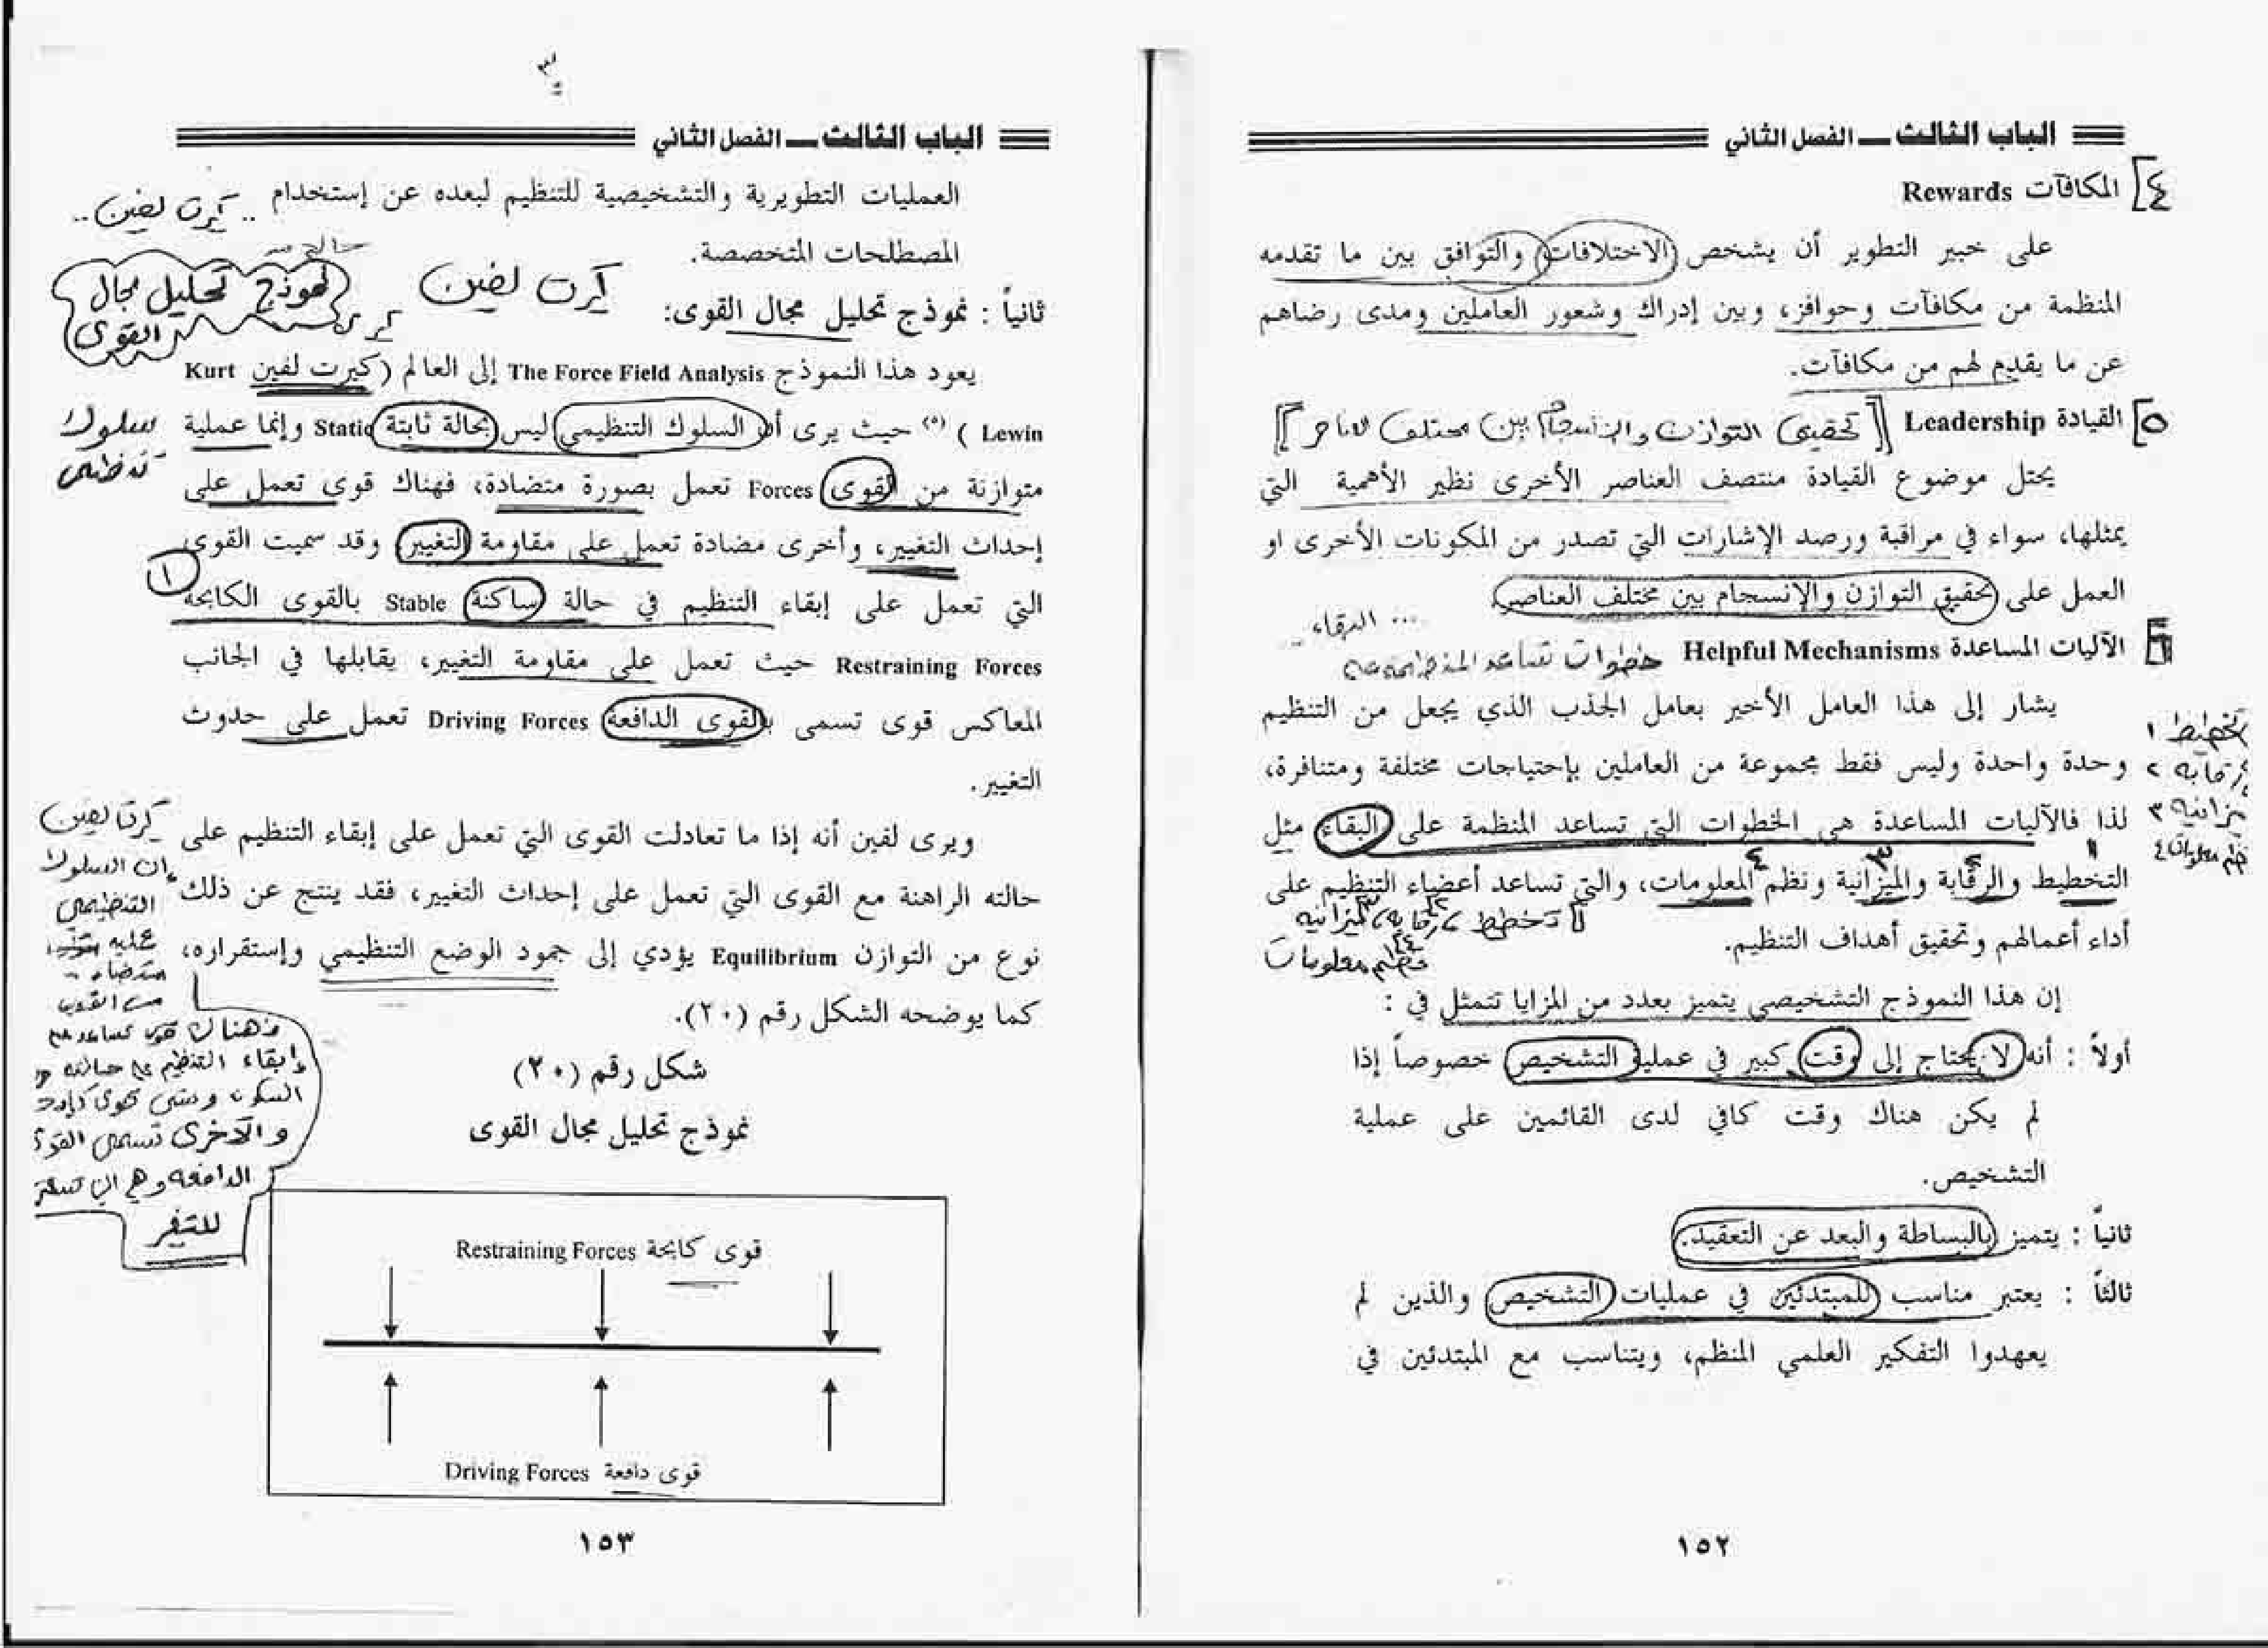 الباب الثالث ــ الفصل الثاني
٤ المكافآت Rewards
على خبير التطوير أن يشخص الاختلافات والتوافق بين ما تقدمه
المنظمة من مكافآت وحوافز، وبين إدراك وشعور العاملين ومدى رضاهم
عن ما يقدم لهم من مكافآت.
٥ القيادة Leadership [تحقيق التوازن والانسجام بين مختلف العناصر]
يحتل موضوع القيادة منتصف العناصر الأخرى نظير الأهمية التي
يمثلها، سواء في مراقبة ورصد الإشارات التي تصدر من المكونات الأخرى او
العمل على تحقيق التوازن والإنسجام بين مختلف العناصر
... البقاء
الآليات المساعدة Helpful Mechanisms خطوات تساعد المنظمة على
يشار إلى هذا العامل الأخير بعامل الجذب الذي يجعل من التنظيم
وحدة واحدة وليس فقط مجموعة من العاملين بإحتياجات مختلفة ومتنافرة،
لذا فالآليات المساعدة هي الخطوات التي تساعد المنظمة على البقاء مثل
التخطيط والرقابة والميزانية ونظم المعلومات، والتي تساعد أعضاء التنظيم على
أداء أعمالهم وتحقيق أهداف التنظيم.
تخطيط ١
رقابة ٢
ميزانية ٣
نظم معلومات ٤
١ تخطيط ٢ رقابة ٣ ميزانية
٤ نظم معلومات
إن هذا النموذج التشخيصي يتميز بعدد من المزايا تتمثل في :
أولاً : أنه لا يحتاج إلى وقت كبير في عملية التشخيص خصوصاً إذا
لم يكن هناك وقت كافي لدى القائمين على عملية
التشخيص.
ثانياً : يتميز بالبساطة والبعد عن التعقيد.
ثالثاً : يعتبر مناسب للمبتدئين في عمليات التشخيص والذين لم
يعهدوا التفكير العلمي المنظم، ويتناسب مع المبتدئين في
١٥٢
الباب الثالث ــ الفصل الثاني
العمليات التطويرية والتشخيصية للتنظيم لبعده عن إستخدام
المصطلحات المتخصصة.
.. كيرت لفين ..
ثانياً : نموذج تحليل مجال القوى:
كيرت لفين
نموذج تحليل مجال
القوى
يعود هذا النموذج The Force Field Analysis إلى العالم (كيرت لفين Kurt
Lewin ) (٥) حيث يرى أن السلوك التنظيمي ليس بحالة ثابتة Static وإنما عملية
متوازنة من القوى Forces تعمل بصورة متضادة، فهناك قوى تعمل على
إحداث التغيير، وأخرى مضادة تعمل على مقاومة التغيير وقد سميت القوى
التي تعمل على إبقاء التنظيم في حالة ساكنة Stable بالقوى الكابحة
Restraining Forces حيث تعمل على مقاومة التغيير، يقابلها في الجانب
المعاكس قوى تسمى بالقوى الدافعة Driving Forces تعمل على حدوث
التغيير.
سلوك
تنظيمي
١
ويرى لفين أنه إذا ما تعادلت القوى التي تعمل على إبقاء التنظيم على
حالته الراهنة مع القوى التي تعمل على إحداث التغيير، فقد ينتج عن ذلك
نوع من التوازن Equilibrium يؤدي إلى جمود الوضع التنظيمي وإستقراره،
كما يوضحه الشكل رقم (٢٠).
كيرت لفين
ان السلوك
التنظيمي
من القوى
فهناك قوى تساعد على
إبقاء التنظيم على حالته
السكون وتسمى قوى كابحة
والآخرى تسمى القوى
الدافعة وهي التي
للتغير
شكل رقم (٢٠)
نموذج تحليل مجال القوى
قوى كابحة Restraining Forces
قوى دافعة Driving Forces
١٥٣